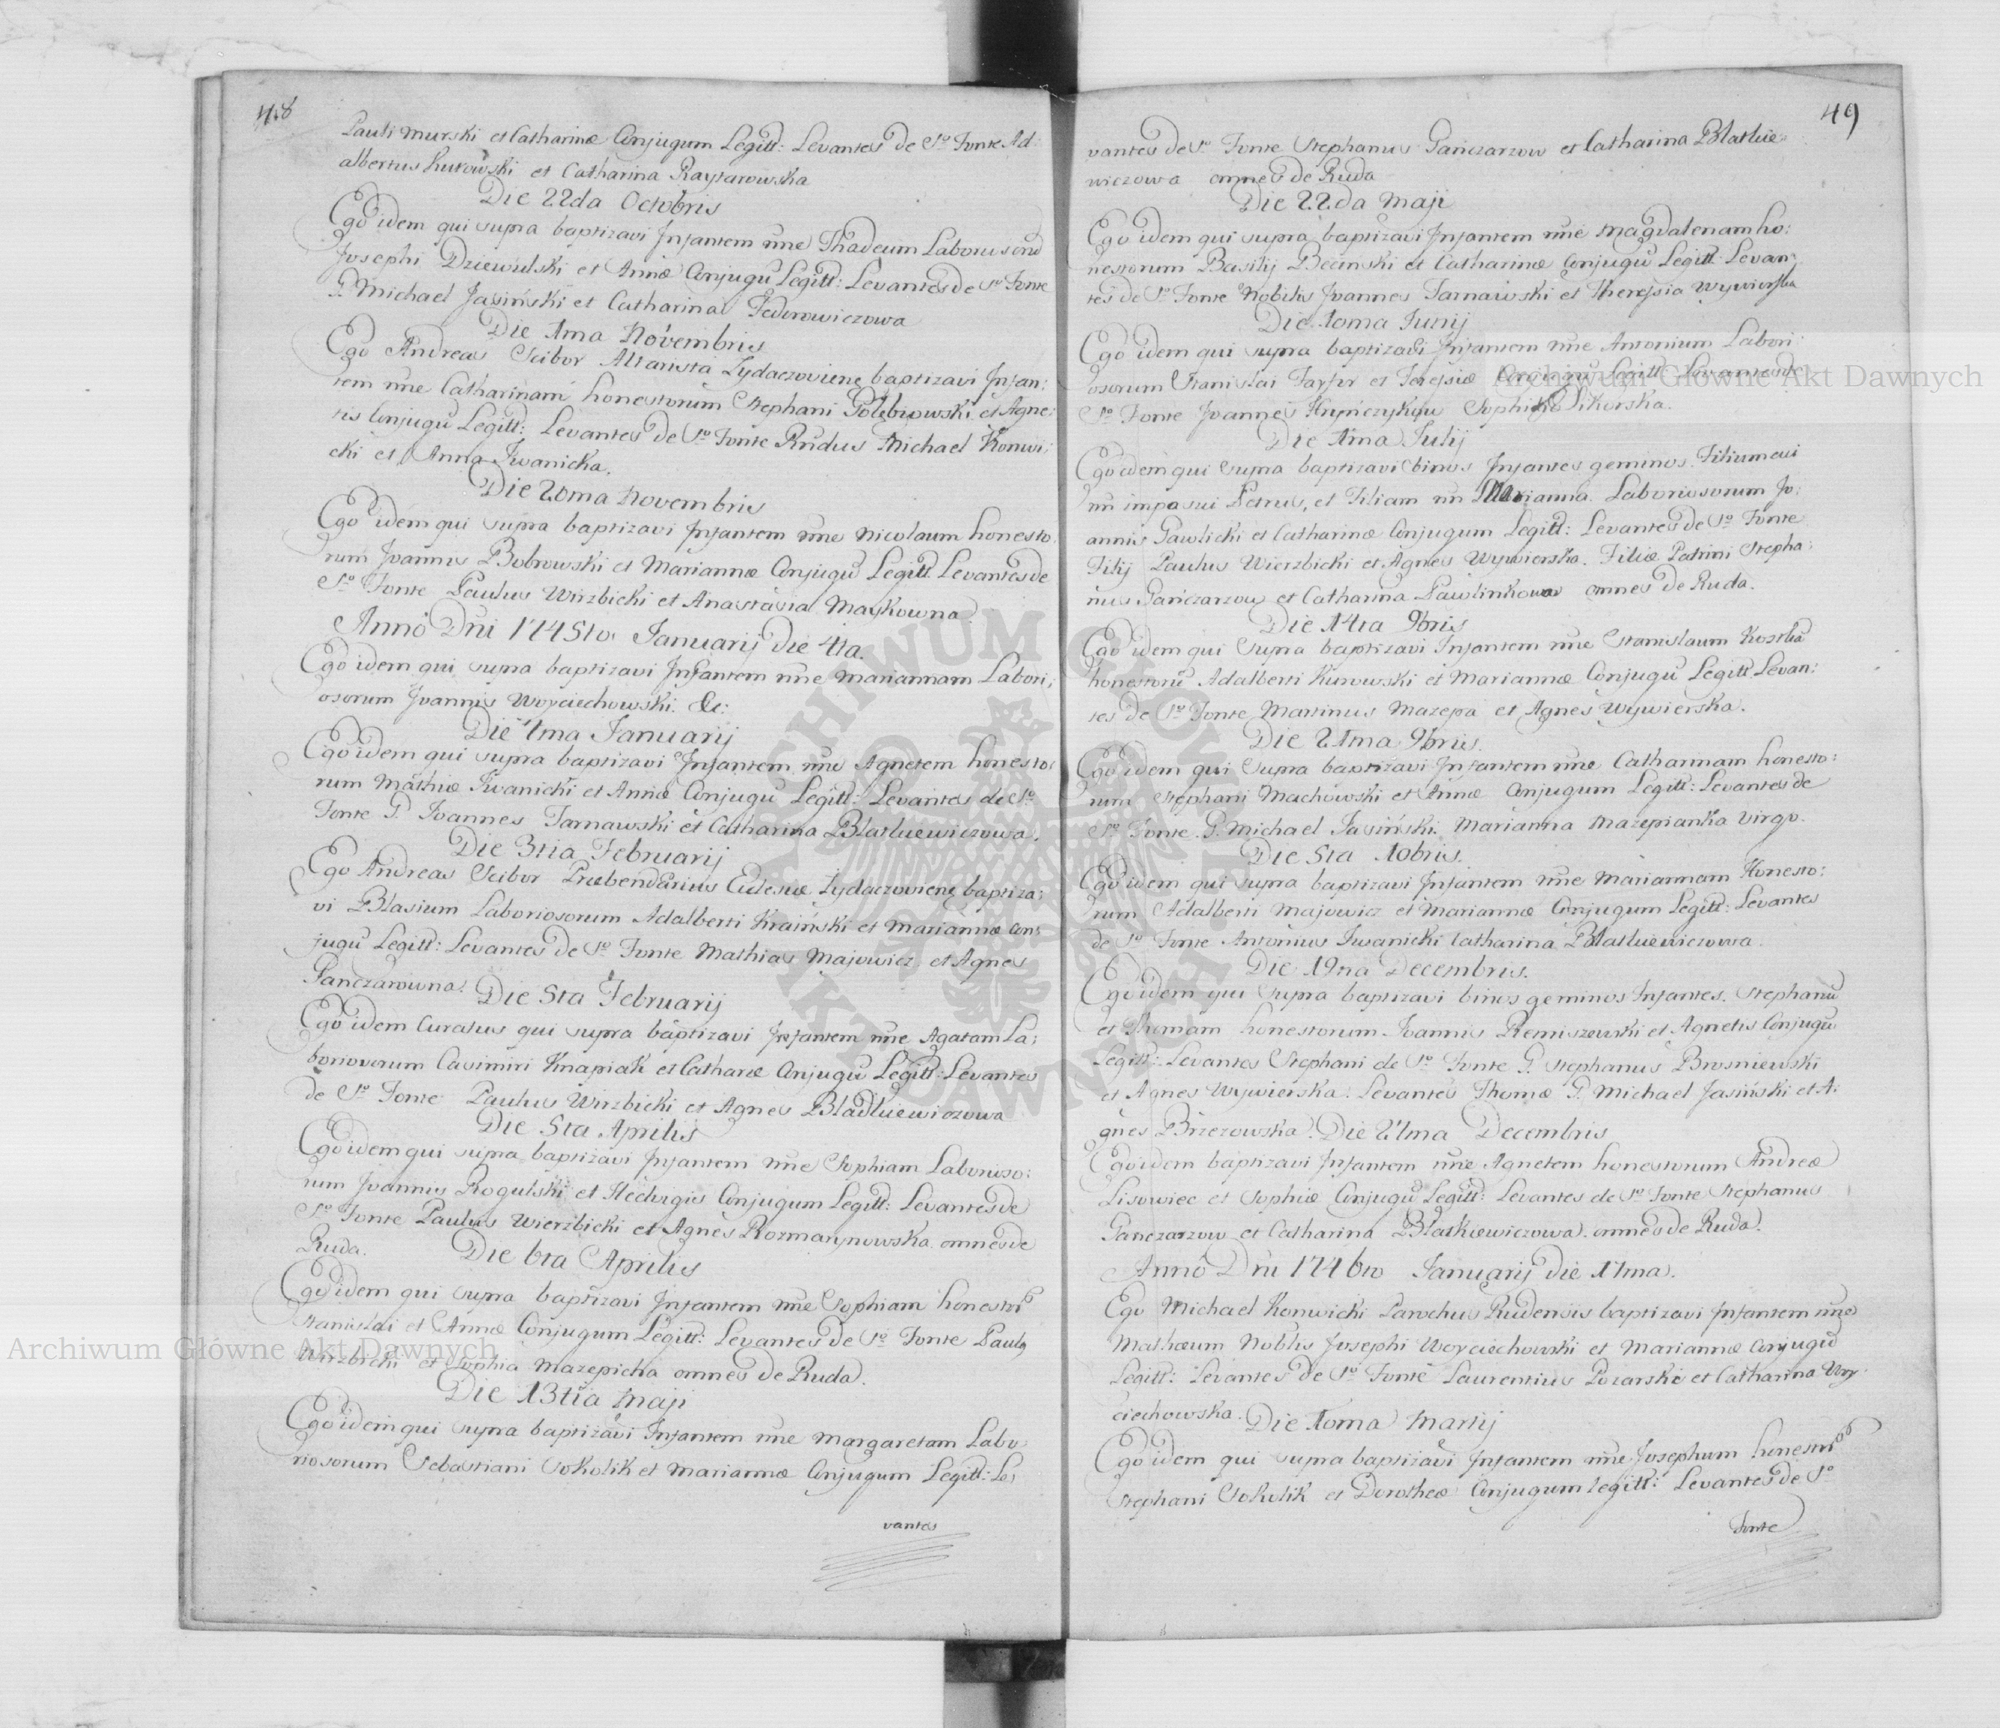 48
Pauli Murski et Catharinæ Conjugum Legitt: Levantes de So Fonte Ad:
albertus Kurowski et Catharina Raytarowska
Die 22da Octobris
Ego idem qui supra baptizavi Infantem nne Thadeum Laborios
Josephi Dziewulski et Annæ Conjugu Legitt: Levantes de So Fonte
G. Michael Jasiński et Catharina Fedorowiczowa
Die 1ma Novembris
Ego Andreas Scibor Altarista Zydaczoviene baptizavi Infan:
tem nne Catharinam honestorum Stephani Golębiowski et Agne:
tis Conjugu Legitt: Levantes de So Fonte Rndus Michael Konwi:
cki et Anna Iwanicka.
Die 20ma Novembris
Ego idem qui supra baptizavi Infantem nne Nicolaum honesto:
rum Joannis Bobrowski et Mariannæ Conjugu Legitt Levantes de
So Fonte Paulus Wirzbicki et Anastasia Maykowna.
Anno Dni 1745to Januarij die 4ta.
Ego idem qui supra baptizavi Infantem nne Mariannam Labori:
osorum Joannis Woyciechowski. &c:
Die 1ma Januarij
Ego idem qui supra baptizavi Infantem nne Agnetem honesto:
rum Mathiæ Iwanicki et Annæ Conjugu Legitt: Levantes de So
Fonte G. Joannes Tarnawski et Catharina Blatkiewiczowa.
Die 3tia Februarij
Ego Andreas Scibor Præbendarius Eclesiæ Zydaczoviene baptiza:
vi Blasium Laboriosorum Adalberti Kraiński et Mariannæ Con:
jugu Legitt: Levantes de So Fonte Mathias Majowicz et Agnes
Ganczarowna. Die 5ta Februarij
Ego idem Curatus qui supra baptizavi Infantem nne Agatam La:
boriosorum Casimiri Knapiak et Catharæ Conjugu Legitt: Levantes
de So Fonte Paulus Wirzbicki et Agnes Bladkiewiczowa
Die 5ta Aprilis
Ego idem qui supra baptizavi Infantem nne Sophiam Laborioso:
rum Joannis Rogulski et Hedvigis Conjugum Legitt: Levantes de
So Fonte Paulus Wierzbicki et Agnes Rozmarynowska omnes de
Ruda. Die 6ta Aprilis
Ego idem qui supra baptizavi Infantem nne Sophiam honestrũ
Stanislai et Annæ Conjugum Legitt: Levantes de So Fonte Pauly
Wirzbicki et Sophia Mazepicha omnes de Ruda.
Die 13tia Maji
Ego idem qui supra baptizavi Infantem nne Margaretam Labo
riosorum Sebastiani Sokolik et Mariannæ Conjugum Legitt: Le:
vantes
49
vantes de So Fonte Stephanus Ganczarzow et Catharina Blatkie:
wiczowa omnes de Ruda
Die 22da Maji
Ego idem qui supra baptizavi Infantem nne Magdalenam ho:
nestorum Basilij Beciński et Catharinæ Conjugu Legitt Levan:
tes de So Fonte Nobilis Joannes Tarnawski et Theresia Wywierska
Die 10ma Junij
Ego idem qui supra baptizavi Infantem nne Antonium Labori:
osorum Stanislai et Teresiæ Conjugu Legitt Levantes de
So Fonte Joannes Sophia Sikorska.
Die 1ma Julij
Ego idem qui supra baptizavi binos Infantes geminos. Filium cui
nn imposui Petrus, et Filiam nn Marianna. Laboriosorum Jo:
annis Pawlicki et Catharinæ Conjugum Legitt: Levantes de So Fonte
Filij Paulus Wierzbicki et Agnes Wywierska. Filiæ Patrini Stepha:
nus Ganczarzow et Catharina Pawlinkowa omnes de Ruda.
Die 14ta 9bris
Ego idem qui supra baptizavi Infantem nne Stanislaum Kostka
honestorũ Adalberti Kurowski et Mariannæ Conjugu Legitt. Levan:
tes de So Fonte Martinus Mazepa et Agnes Wywierska.
Die 21ma 9bris.
Ego idem qui supra baptizavi Infantem nne Catharinam honesto:
rum Stephani Machowski et Annæ Conjugum Legitt: Levantes de
So Fonte G. Michael Jasiński. Marianna Mazepianka virgo.
Die 5ta 10bris.
Ego idem qui supra baptizavi Infantem nne Mariannam Honesto:
rum Adalberti Majowicz et Mariannæ Conjugum Legitt: Levantes
de So Fonte Antonius Iwanicki Catharina Blatkiewiczowa.
Die 19na Decembris.
Ego idem qui supra baptizavi binos geminos Infantes. Stephanũ
et Thomam honestorum Joannis Remiszewski et Agnetis Conjugu
Legitt: Levantes Stephani de So Fonte G. Stephanus Brosniewski
et Agnes Wywierska. Levantes Thomæ G. Michael Jasiński et A:
gnes Brzezowska. Die 21ma Decembris
Ego idem baptizavi Infantem nne Agnetem honestorum Andreæ
Lisowiec et Sophiæ Conjugu Legitt: Levantes de So Fonte Stephanus
Ganczarzow et Catharina Blatkiewiczowa. omnes de Ruda.
Anno Dni 1746to Januarij die 17ma.
Ego Michael Konwicki Parochus Rudensis baptizavi Infantem nne
Mathæum Noblis Josephi Woyciechowski et Mariannæ Conjugu
Legitt: Levantes de So Fonte Laurentius Pozarski et Catharina Woy:
ciechowska. Die 10ma Martij
Ego idem qui supra baptizavi Infantem nne Josephum honestrũ
Stephani Sokolik et Dorotheæ Conjugum legitt: Levantes de So
Fonte
Archiwum Główne Akt Dawnych
Archiwum Główne Akt Dawnych
ARCHIWUM GŁÓWNE AKT DAWNYCH